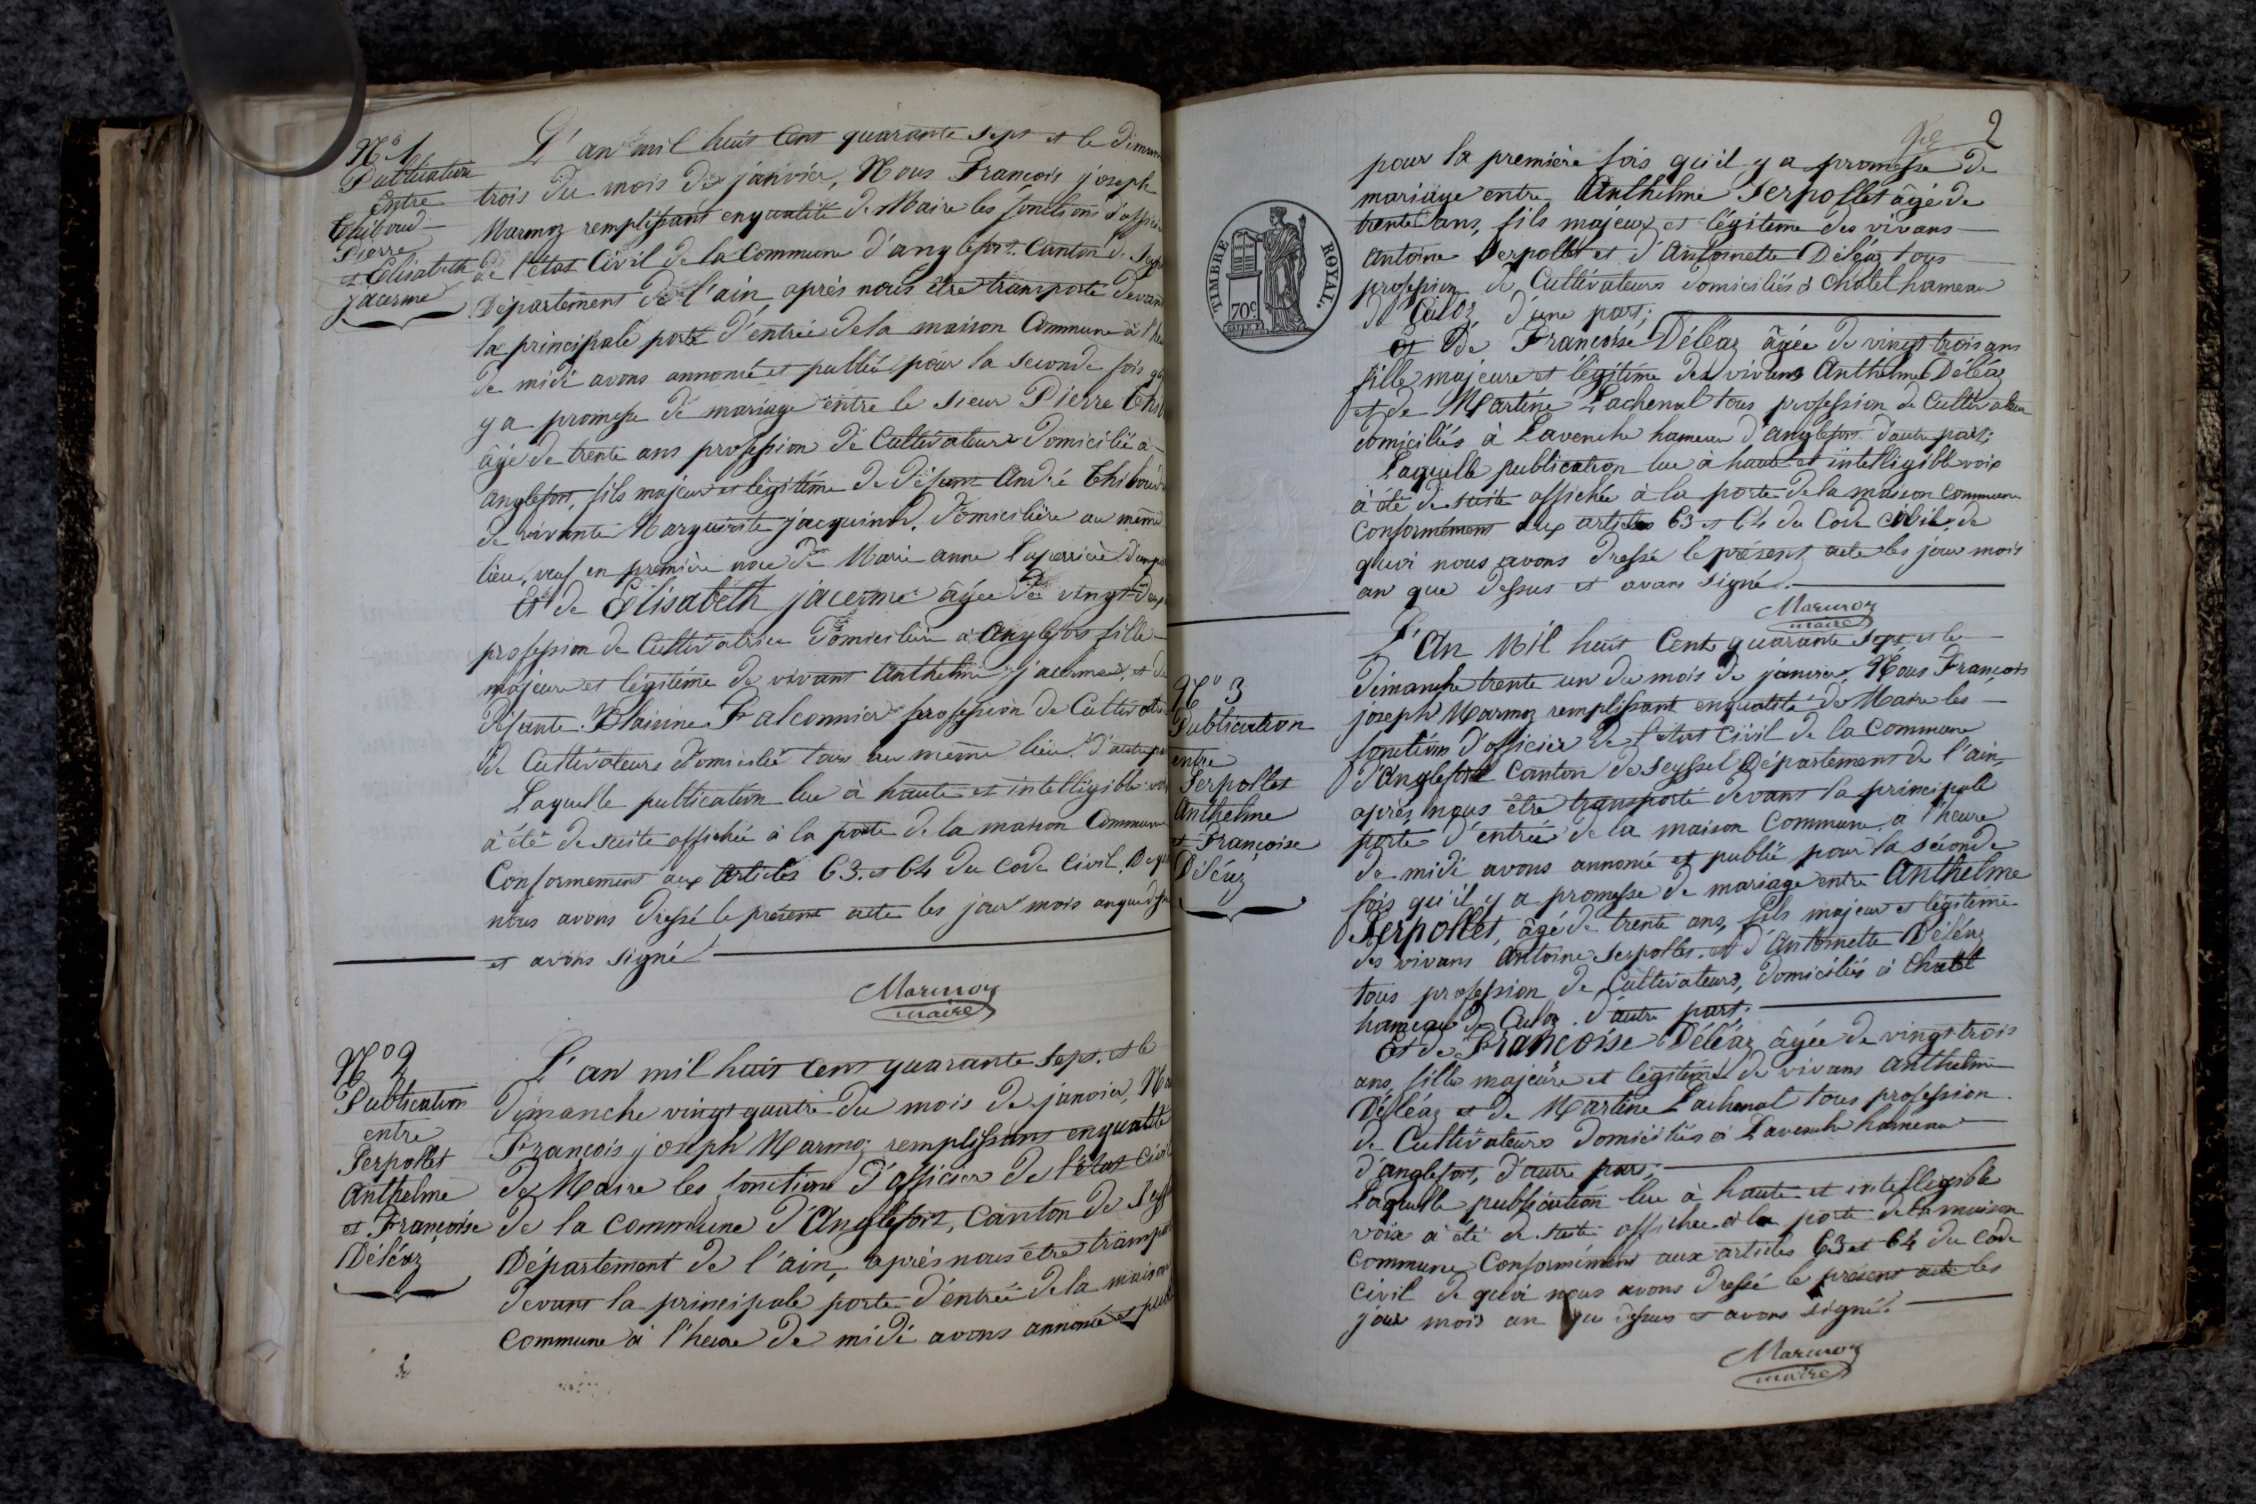 N° 1
Publication
entre
Thiboud
Pierre
et Elisabeth
jacerme
L'an mil huit Cent quarante sept et le
trois du mois de janvier, Nous François joseph
Marmoz remplissant enqualité de Maire les fonctions
de l'état Civil de la Commune d'anglefort Canton de
Département de l'ain après nous être transporté devant
la principale porte d'entrée dela maison Commune à
de midi avons annoncé et publié pour la seconde fois
y a promesse de mariage entre le sieur Pierre
âgé de trente ans profession de Cultivateur domicilié à
anglefort, fils majeur et légitime de défunt André Thiboud
de vivante Marguerite jacquinod, domicilière au même
lieu, veuf en première noce de Marie anne
Et de Elisabeth jacerme âgée de
profession de Cultivatrice domicilière à anglefort fille
majeure et légitime de vivant Anthelme jacerme, et de
défunte Blaisine Falconnier profession de
de Cultivateurs domicilié tous au même lieu d'autre
Laquelle publication lue à haute et intelligible
à été de suite affichée à la porte de la maison Commune
Conformement aux articles 63. et 64 du Code Civil.
nous avons dressé le présent acte les jour mois anque
et avons signé
Marmoz
maire
N° 2
Publication
entre
Serpollet
Anthelme
et Françoise
Déléaz
L'an mil huit Cent quarante sept. et le
Dimanche vingt quatre du mois de janvier,
François joseph Marmoz remplissant enqualité
de Maire les fonctions d'officier de l'état civil
de la Commune d'Anglefort, Canton de
Département de l'ain, après nous être
devant la principale porte d'entrée de la maison
Commune à l'heure de midi avons annoncé et
2
TIMBRE ROYAL.
70c
pour la première fois qu'il y a promesse de
mariage entre Anthelme Serpollet âgé de
trente ans, fils majeur et légitime des vivans
Antoine Serpollet et d'Antoinette Déléaz tous
profession de Cultivateurs domiciliés à Châtel hameau
de Culoz d'une part;
et de Françoise Déléaz âgée de vingt trois ans
fille majeure et légitime des vivans Anthelme Déléaz
et de Martine Lachenal tous profession de Cultivateur
domiciliés à Lavenche hameau d'anglefort d'autre part;
Laquelle publication lue à haute et intelligible voix
à été de suite affichée à la porte dela maison commune
Conformément aux articles 63 et 64 du Code civil; de
quoi nous avons dressé le présent acte les jour mois
an que dessus et avons signé.
Marmoz
maire
N° 3
Publication
entre
Serpollet
Anthelme
et Françoise
Déléaz
L'An Mil huit Cent quarante sept et le
dimanche trente un du mois de janvier, Nous François
joseph Marmoz remplissant enqualité de Maire les
fonctions d'officier de l'état Civil de la Commune
d'Anglefort Canton de Seyssel Département de l'ain,
après nous être transporté devant la principale
porte d'entrée de la maison Commune à l'heure
de midi avons annoncé et publié pour la séconde
fois qu'il y a promesse de mariage entre Anthelme
Serpollet, âgé de trente ans, fils majeur et légitime
des vivans Antoine Serpollet et d'Antoinette Déléaz
tous profession de Cultivateurs, domiciliés à Chatel
hameau de Culoz d'autre part;
Et de Françoise Déléaz âgée de vingt trois
ans, fille majeure et légitime de vivans anthelme
Déléaz et de Martine Lachenal tous profession
de Cultivateurs domiciliés à Lavenche hameau
d'anglefort, d'autre part;
Laquelle publication lue à haute et intelligible
voix à été de suite affichée à la porte dela maison
Commune Conformément aux articles 63 et 64 du Code
civil de quoi nous avons dressé le présent acte les
jour mois an que dessus et avons signé.
Marmoz
maire